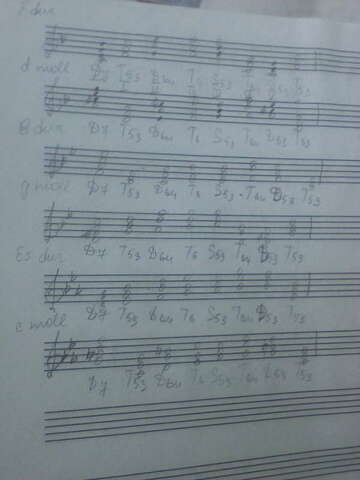 F dur
d moll D7 T53 D64 T6 S53 T64 D53 T53
B dur D7 T53 D64 T6 S53 T64 D53 T53
g moll D7 T53 D64 T6 S53 T64 D53 T53
Es dur D7 T53 D64 T6 S53 T64 D53 T53
c moll D7 T53 D64 T6 S53 T64 D53 T53
D7 T53 D64 T6 S53 T64 D53 T53